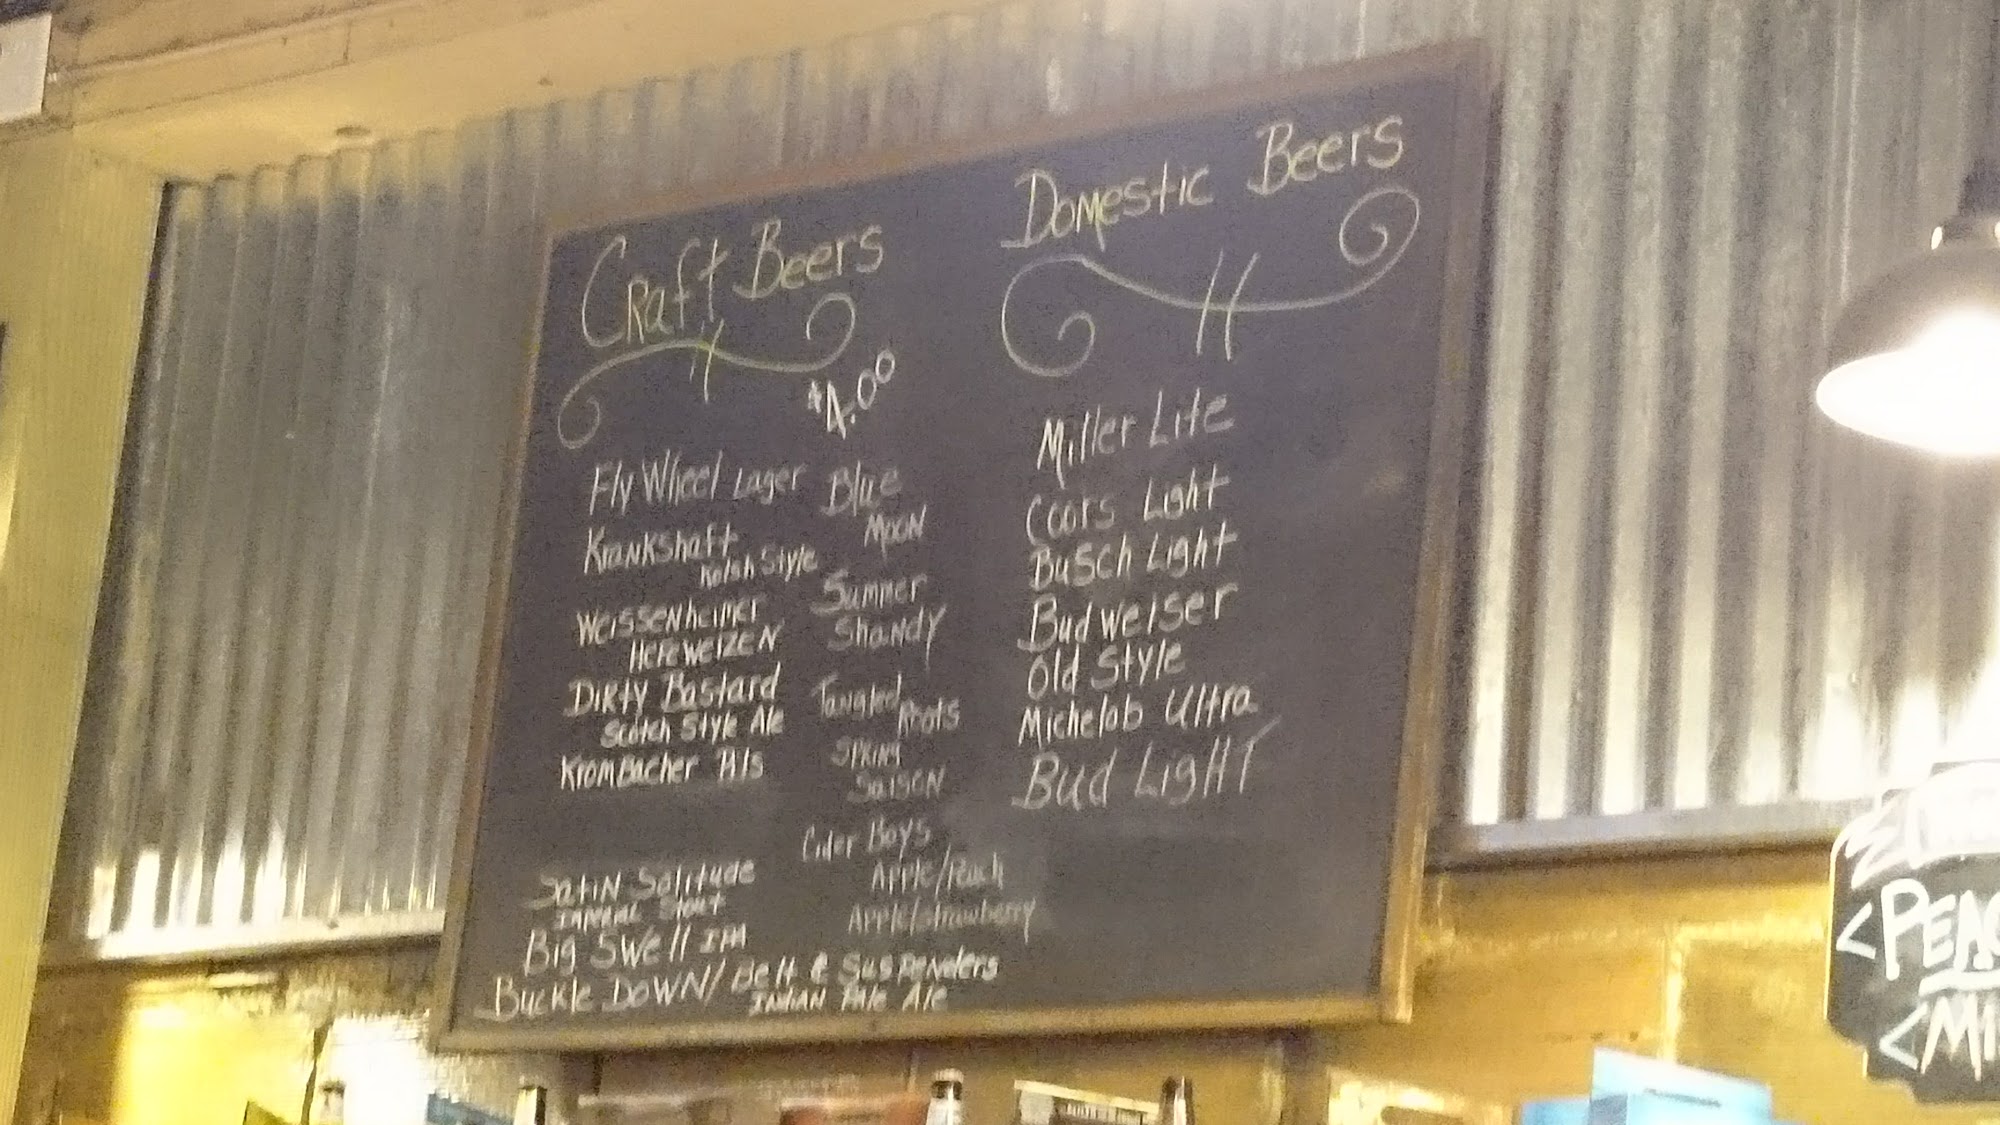 Craft Beers
$4.00
Fly Wheel Lager
Krankshaft
Kolsh Style
Weissenheimer
Hefeweizen
Dirty Bastard
Scotch Style Ale
Krombacher Pils
Satin Solitude
Imperial Stout
Big Swell IPA
Buckle Down/ Belt & Suspenders
Indian Pale Ale
Blue
Moon
Summer
Shandy
Tangled
Roots
Spring
Saison
Cider Boys
Apple/Peach
Apple/strawberry
Domestic Beers
Miller Lite
Coors Light
Busch Light
Budweiser
Old Style
Michelob Ultra
Bud Light